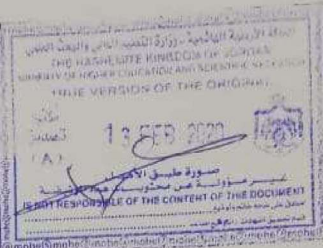 المملكة الأردنية الهاشمية - وزارة التعليم العالي والبحث العلمي
THE HASHEMITE KINGDOM OF JORDAN
MINISTRY OF HIGHER EDUCATION AND SCIENTIFIC RESEARCH
TRUE VERSION OF THE ORIGINAL
مكتب
تصديق
13 FEB 2020
( A )
صورة طبق الأصل
غير مسؤولة عن محتويات هذه الوثيقة
IS NOT RESPONSIBLE OF THE CONTENT OF THIS DOCUMENT